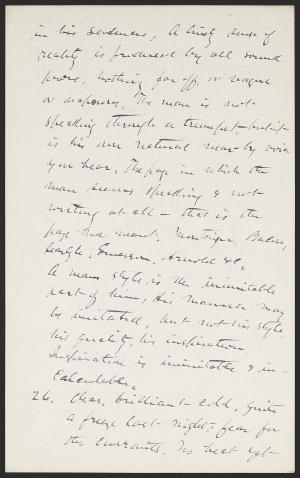 in his sentences, A lively sense of
reality is produced by all sound
prose, nothing far off, or vague
or vaporous, The man is not
speaking through a trumpet – but it
is his own natural near-by voice
you hear, The page in which the
man seems speaking & not
writing at all – that is the
page we want. Montaigne, Bacon,
Carlyle, Emerson, Arnold &c.
A mans style is the inimitable
part of him, His manner may
be imitated, but not his style,
his quality, his inspiration
Inspiration is inimitable & in-
calculable.
26. Clear, brilliant cold, quite
a freeze last night; fear for
the currants. No heat yet